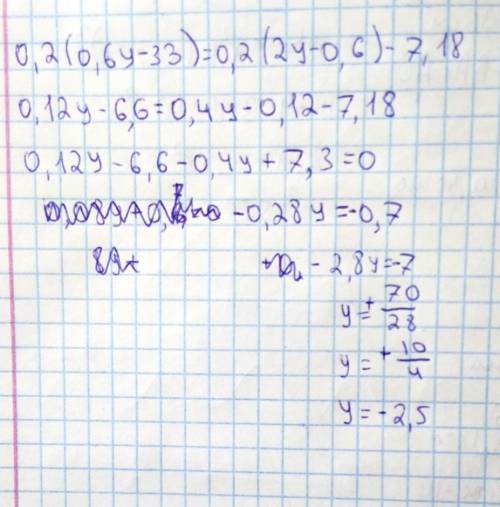 0,2(0,6y-33)=0,2(2y-0,6)-7,18
0,12y-6,6=0,4y-0,12-7,18
0,12y-6,6-0,4y+7,3=0
-0,28y=-0,7
-2,8y=-7
y=+70/28
y=+10/4
y=-2,5